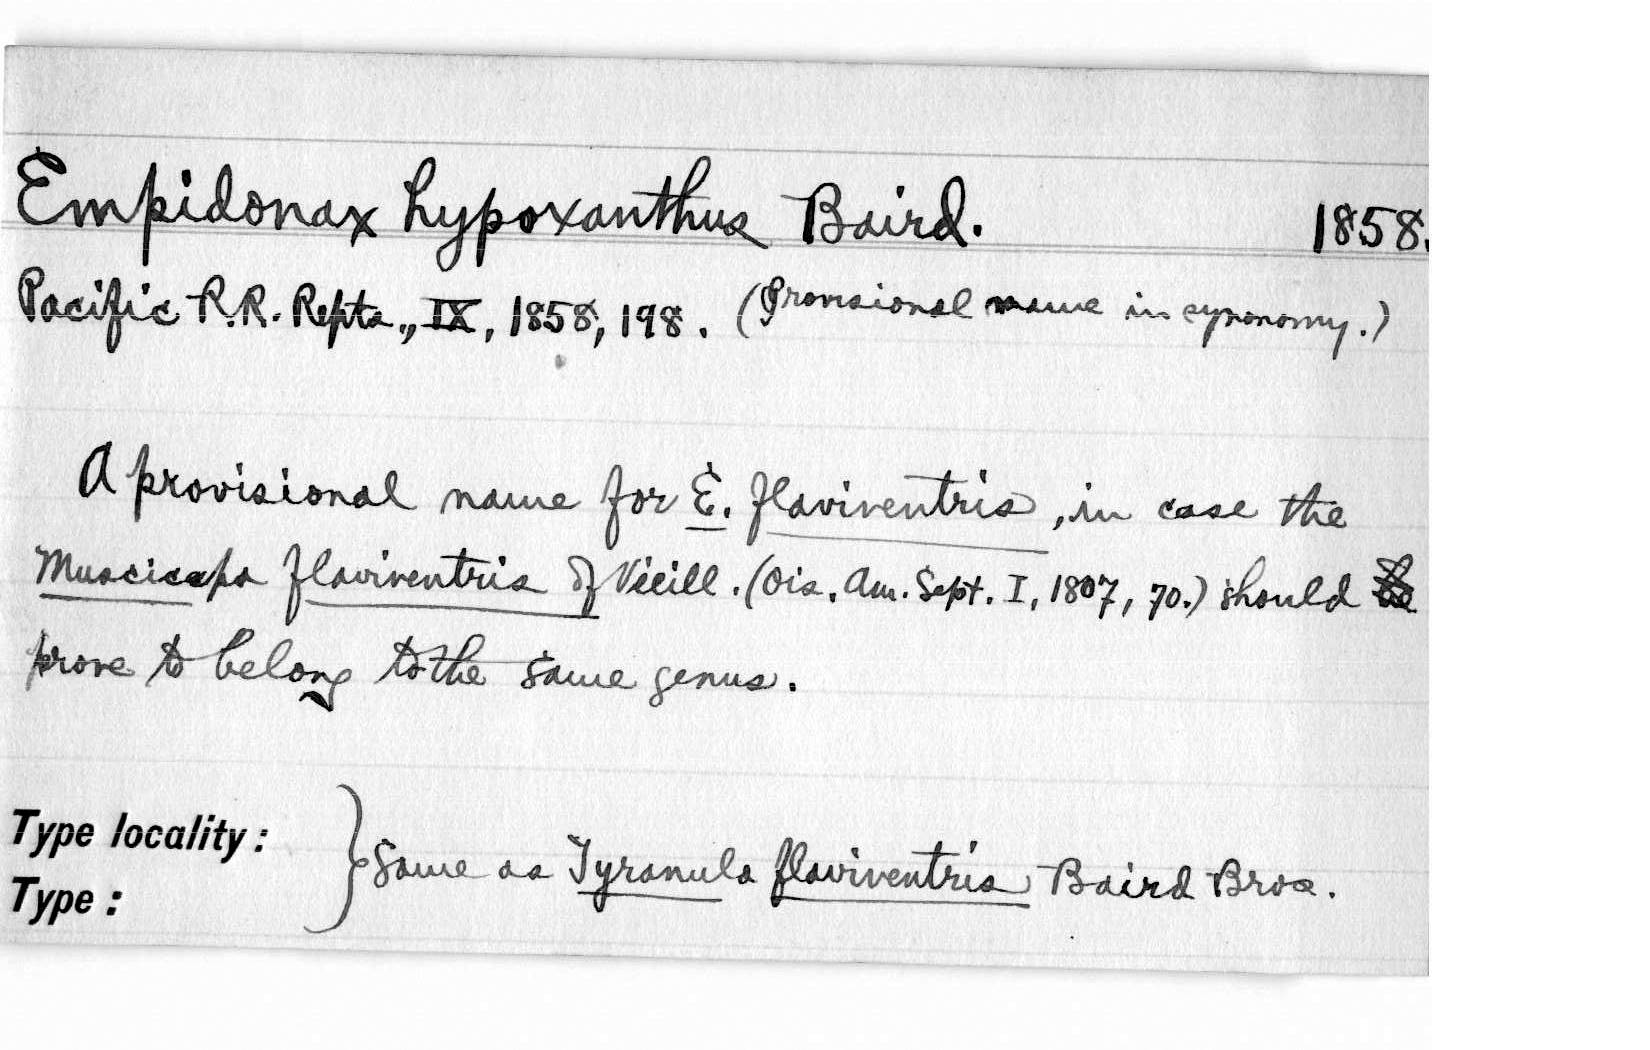 Empidonax hypoxanthus Baird. 1858.
Pacific R.R. Repts., IX, 1858, 198. (Provisional name in synonomy.)
A provisional name for E. flaviventris, in case the
Muscicapa flaviventris of Vieill. (Ois. Am. Sept. I, 1807, 70.) should
prove to belong to the same genus.
Type locality: } Same as Tyranula flaviventris Baird Bros.
Type: